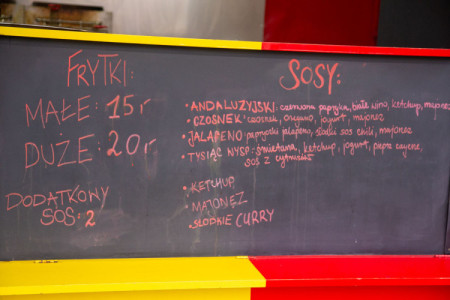 FRYTKI:
MAŁE: 15 r
DUŻE: 20 r.
DODATKOWY
SOS: 2
SOSY:
• ANDALUZYJSKI: czerwona papryka, białe wino, ketchup, majonez
• CZOSNEK: czosnek, oregano, jogurt, majonez
• JALAPEÑO: papryczki jalapeño, słodki sos chili, majonez
• TYSIĄC WYSP: śmietana, ketchup, jogurt, papra cayene,
SOS z cytrusów
• KETCHUP
• MAJONEZ
• SŁODKIE CURRY